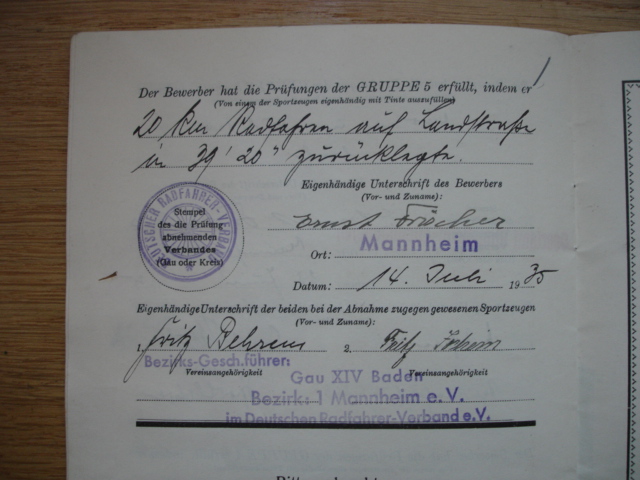 Der Bewerber hat die Prüfungen der GRUPPE 5 erfüllt, indem er
(Von einem der Sportzeugen eigenhändig mit Tinte auszufüllen)
20 km Radfahren auf Landstraße
in 39' 20" zurücklegte.
Eigenhändige Unterschrift des Bewerbers
(Vor- und Zuname):
Ernst
Ort: Mannheim
Datum: 14. Juli 1935
DEUTSCHER RADFAHRER-VERBAND
Stempel
des die Prüfung
abnehmenden
Verbandes
(Gau oder Kreis)
Eigenhändige Unterschrift der beiden bei der Abnahme zugegen gewesenen Sportzeugen
(Vor- und Zuname):
1. Fritz Behrens 2. Fritz
Bezirks-Gesch.führer:
Vereinsangehörigkeit Vereinsangehörigkeit
Gau XIV Baden
Bezirk: 1 Mannheim e. V.
im Deutschen Radfahrer-Verband e.V.